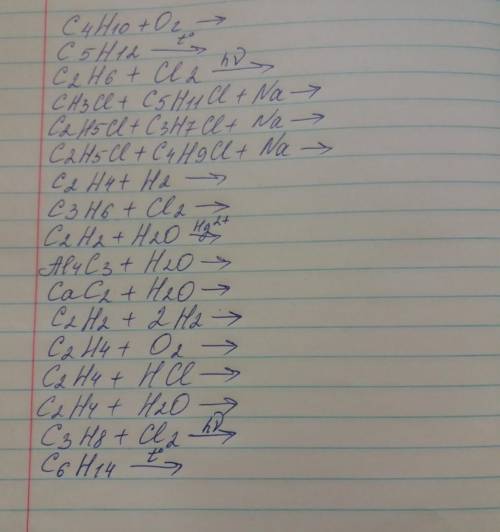 C4H10 + O2 →
C5H12 t° →
C2H6 + Cl2 hν →
CH3Cl + C5H11Cl + Na →
C2H5Cl + C3H7Cl + Na →
C2H5Cl + C4H9Cl + Na →
C2H4 + H2 →
C3H6 + Cl2 →
C2H2 + H2O Hg2+ →
Al4C3 + H2O →
CaC2 + H2O →
C2H2 + 2H2 →
C2H4 + O2 →
C2H4 + HCl →
C2H4 + H2O →
C3H8 + Cl2 hν →
C6H14 t° →